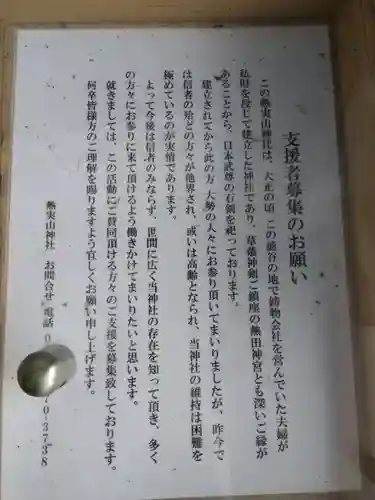 支援者募集のお願い
この熱実山神社は、大正の頃、この熊谷の地で鋳物会社を営んでいた夫婦が
私財を投じて建立した神社であり、草薙神剣ご鎮座の熱田神宮とも深いご縁が
あることから、日本武尊の石劍を祀っております。
建立されてから此の方、大勢の人々にお参り頂いてまいりましたが、昨今で
は信者の殆どの方々が他界され、或いは高齢となられ、当神社の維持は困難を
極めているのが実情であります。
よって今後は信者のみならず、世間に広く当神社の存在を知って頂き、多く
の方々にお参りに来て頂けるよう働きかけてまいりたいと思います。
就きましては、この活動にご賛同頂ける方々のご支援を募集致しております。
何卒皆様方のご理解を賜りますよう宜しくお願い申し上げます。
熱実山神社 お問合せ 電話 0 70-3738